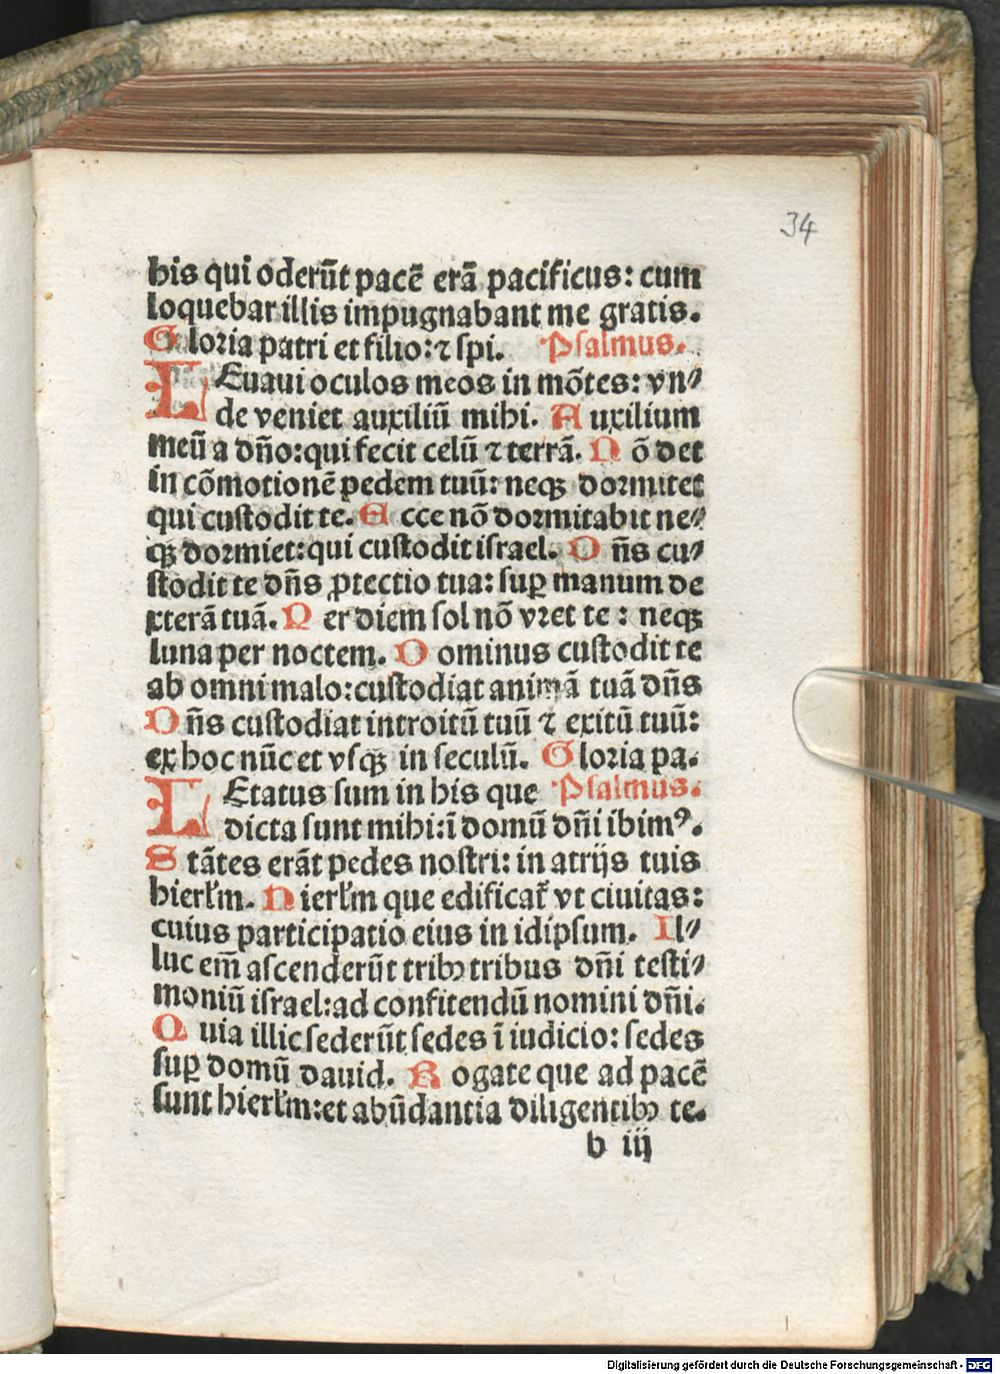 34
his qui oderūt pacē erā pacificus: cum
loquebar illis impugnabant me gratis.
Gloria patri et filio: ⁊ spi. Psalmus.
LEuaui oculos meos in mōtes: vn⸗
de veniet auxiliū mihi. Auxilium
meū a dño: qui fecit celū ⁊ terrā. Nō det
in cōmotionē pedem tuū: neqꝫ dormitet
qui custodit te. Ecce nō dormitabit ne⸗
qꝫ dormiet: qui custodit israel. Dñs cu⸗
stodit te dñs ꝓtectio tua: suꝑ manum de
xterā tuā. Per diem sol nō vret te: neqꝫ
luna per noctem. Dominus custodit te
ab omni malo: custodiat animā tuā dñs
Dñs custodiat introitū tuū ⁊ exitū tuū:
ex hoc nūc et vsqꝫ in seculū. Gloria pa.
LEtatus sum in his que Psalmus.
dicta sunt mihi: ī domū dñi ibimꝰ.
Stātes erāt pedes nostri: in atrijs tuis
hierlm̄. Hierlm̄ que edificat̄ vt ciuitas:
cuius participatio eius in idipsum. Il⸗
luc em̄ ascenderūt tribꝫ tribus dñi testi⸗
moniū israel: ad confitendū nomini dñi.
Quia illic sederūt sedes ī iudicio: sedes
suꝑ domū dauid. Rogate que ad pacē
sunt hierlm̄: et abūdantia diligentibꝫ te.
b iij
Digitalisierung gefördert durch die Deutsche Forschungsgemeinschaft - DFG